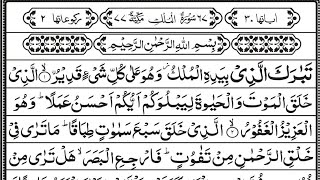 اٰیاتها ۳۰ ۶۷ سُوْرَةُ الْمُلْكِ مَكِّیَّةٌ ۷۷ رکوعاتها ۲
بِسْمِ اللّٰهِ الرَّحْمٰنِ الرَّحِیْمِ
تَبٰرَكَ الَّذِیْ بِیَدِهِ الْمُلْكُ ؗ وَ هُوَ عَلٰی كُلِّ شَیْءٍ قَدِیْرُ ۙ﴿۱﴾ الَّذِیْ
خَلَقَ الْمَوْتَ وَ الْحَیٰوةَ لِیَبْلُوَكُمْ اَیُّكُمْ اَحْسَنُ عَمَلًا ؕ وَ هُوَ
الْعَزِیْزُ الْغَفُوْرُ ۙ﴿۲﴾ الَّذِیْ خَلَقَ سَبْعَ سَمٰوٰتٍ طِبَاقًا ؕ مَا تَرٰی فِیْ
خَلْقِ الرَّحْمٰنِ مِنْ تَفٰوُتٍ ؕ فَارْجِعِ الْبَصَرَ ۙ هَلْ تَرٰی مِنْ